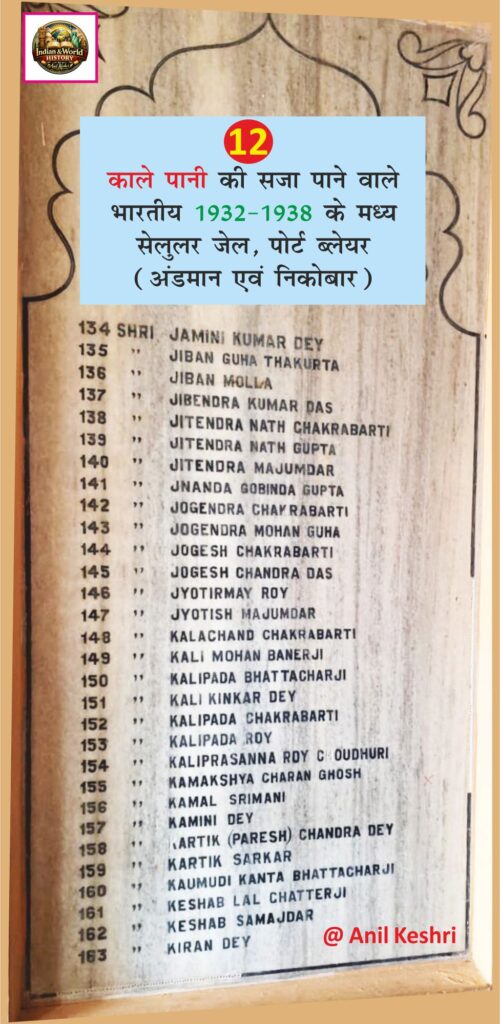 Indian & World
HISTORY
12
काले पानी की सजा पाने वाले
भारतीय 1932-1938 के मध्य
सेलुलर जेल, पोर्ट ब्लेयर
( अंडमान एवं निकोबार )
134 SHRI JAMINI KUMAR DEY
135 " JIBAN GUHA THAKURTA
136 " JIBAN MOLLA
137 " JIBENDRA KUMAR DAS
138 " JITENDRA NATH CHAKRABARTI
139 " JITENDRA NATH GUPTA
140 " JITENDRA MAJUMDAR
141 " JNANDA GOBINDA GUPTA
142 " JOGENDRA CHAKRABARTI
143 " JOGENDRA MOHAN GUHA
144 " JOGESH CHAKRABARTI
145 " JOGESH CHANDRA DAS
146 " JYOTIRMAY ROY
147 " JYOTISH MAJUMDAR
148 " KALACHAND CHAKRABARTI
149 " KALI MOHAN BANERJI
150 " KALIPADA BHATTACHARJI
151 " KALI KINKAR DEY
152 " KALIPADA CHAKRABARTI
153 " KALIPADA ROY
154 " KALIPRASANNA ROY C OUDHURI
155 " KAMAKSHYA CHARAN GHOSH
156 " KAMAL SRIMANI
157 " KAMINI DEY
158 " KARTIK (PARESH) CHANDRA DEY
159 " KARTIK SARKAR
160 " KAUMUDI KANTA BHATTACHARJI
161 " KESHAB LAL CHATTERJI
162 " KESHAB SAMAJDAR
163 " KIRAN DEY
@ Anil Keshri